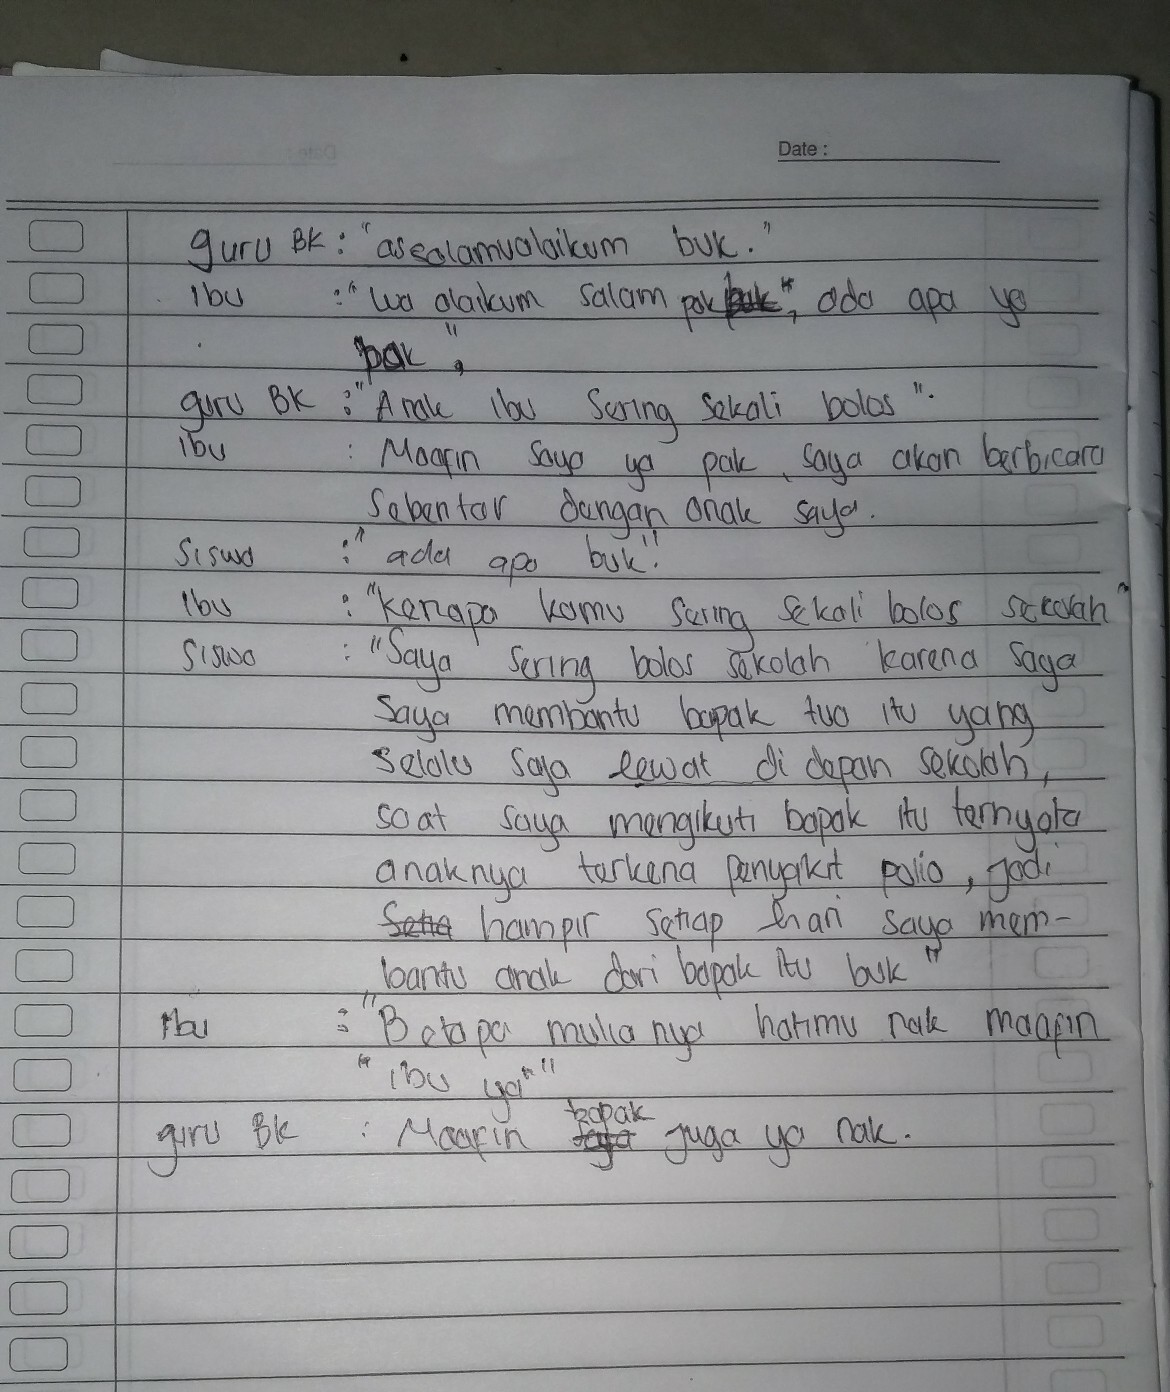 Date :
guru BK : "assalamualaikum buk."
Ibu : "Wa alaikum salam pak", ada apa ya
pak",
guru BK : "Anak ibu Sering Sekali bolos".
ibu : Maafin saya ya pak, saya akan berbicara
Sebentar dengan anak saya.
Siswa : "ada apa buk".
Ibu : "Kenapa kamu sering sekali bolos sekolah"
Siswa : "Saya sering bolos sekolah karena saya
Saya membantu bapak tua itu yang
selalu saja lewat di depan sekolah,
saat saya mengikuti bapak itu ternyata
anaknya terkena penyakit polio, jadi
hampir setiap hari saya mem-
bantu anak dari bapak itu buk"
Ibu : "Betapa mulia nya hatimu nak maafin
"ibu ya""
guru BK : Maafin bapak juga ya nak.